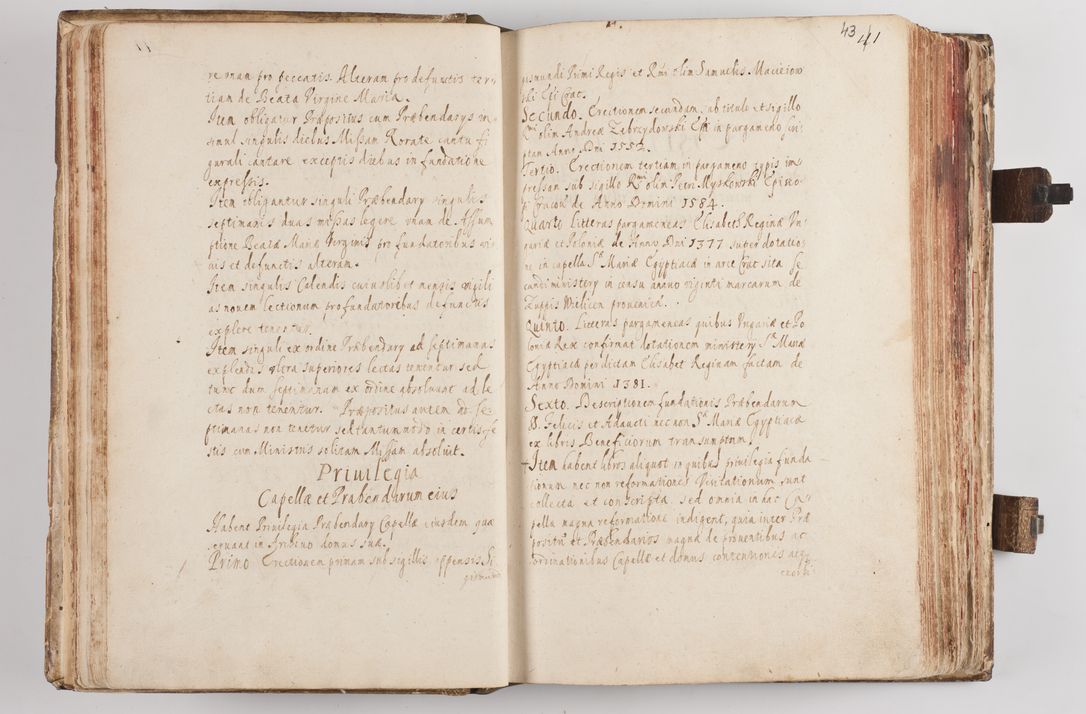 re unan pro peccatis. Alteram pro defunctis ter
tiam de Beata Virgine Maria.
Item obligatur Præpositus cum Præbendarys in
simul singulis diebus Missam Rorate cantu fi
gurali cantare exceptis diebus in fundatione
expressis.
Item obligantur singuli Præbendary singulis
septimanis duas missas legere unam de Assum
ptione Beatæ Mariæ Virginis pro fundatoribus vi
uis et defunctis alteram.
Item singulis Calendis cuiuslibet mensis vigili
as nouem lectionum pro fundatoribus defunctis
explere tenentur.
Item singuli ex ordine Præbendary ad septimanas
explendas ultra superiores lectas tenentur sed
tunc dum septimanam ex ordine absoluunt ad le
ctas non tenentur. Præpositus autem do se
ptimanas non tenetur sed tantummodo in certis fe
stis cum Ministris solitam Missam absoluit.
Priuilegia
Capellæ et Præbendarum eius
Habent Priuilegia Præbendary Capellæ eiusdem quæ
seruant in Archiuo domus suæ.
Primo Erectionem primam sub sigillis appensis Si
gismundi
43 41
gismundi Primi Regis et Rmi olim Samuelis Macieiow
ski Epi Crac.
Secundo. Erectionem secundam sub titulo et sigillo
Rmi olim Andreæ Zebrzydowski Epi in pargameno scri
ptam Anno Dni 1552.
Tertio. Erectionem tertiam in pargameno typis im
pressam sub sigillo Rmi olim Petri Myskowski Episco
pi Cracou. de Anno Domini 1584.
Quarto Litteras pargameneas Elisabeth Reginæ Un
gariæ et Poloniæ de Anno Dni 1377 super dotatio
ne in capella Stæ Mariæ Egyptiacæ in arce Crac sita se
cundi ministery in censu annuo viginti marcarum de
Zuppis Wielicen prouenien.
Quinto. Litteras pargameneas quibus Ungariæ et Po
loniæ Rex confirmat dotationem ministery Stæ Mariæ
Egyptiacæ per dictam Elisabet Reginam factam de
Anno Domini 1381.
Sexto. Descriptionem fundationis Præbendarum
SS. Felicis et Adaucti nec non Stæ Mariæ Egyptiacæ
ex libris Beneficiorum transumptam
Item habent libros aliquot in quibus priuilegia funda
tionum nec non reformationes Visitationum sunt
collecta et conscripta sed omnia in hac Ca
pella magna reformatione indigent, quia inter Præ
positum et Præbendarios magnæ de prouentibus ac
ordinationibus Capellæ et domus contentiones
exort